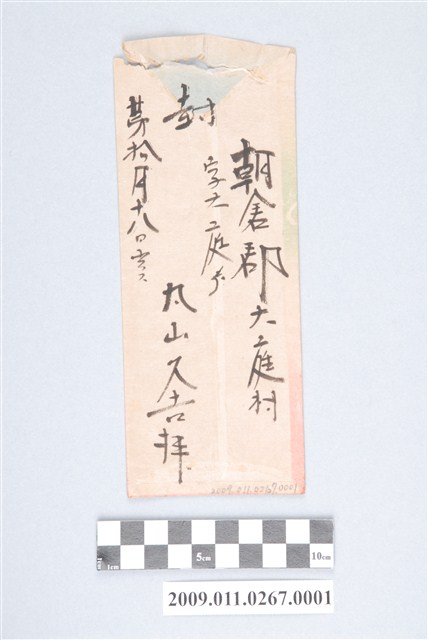 朝倉郡大庭村
字大庭
封
丸山久吉拝
第拾月十八日
2009.011.0267.0001
1cm
5cm
10cm
2009.011.0267.0001